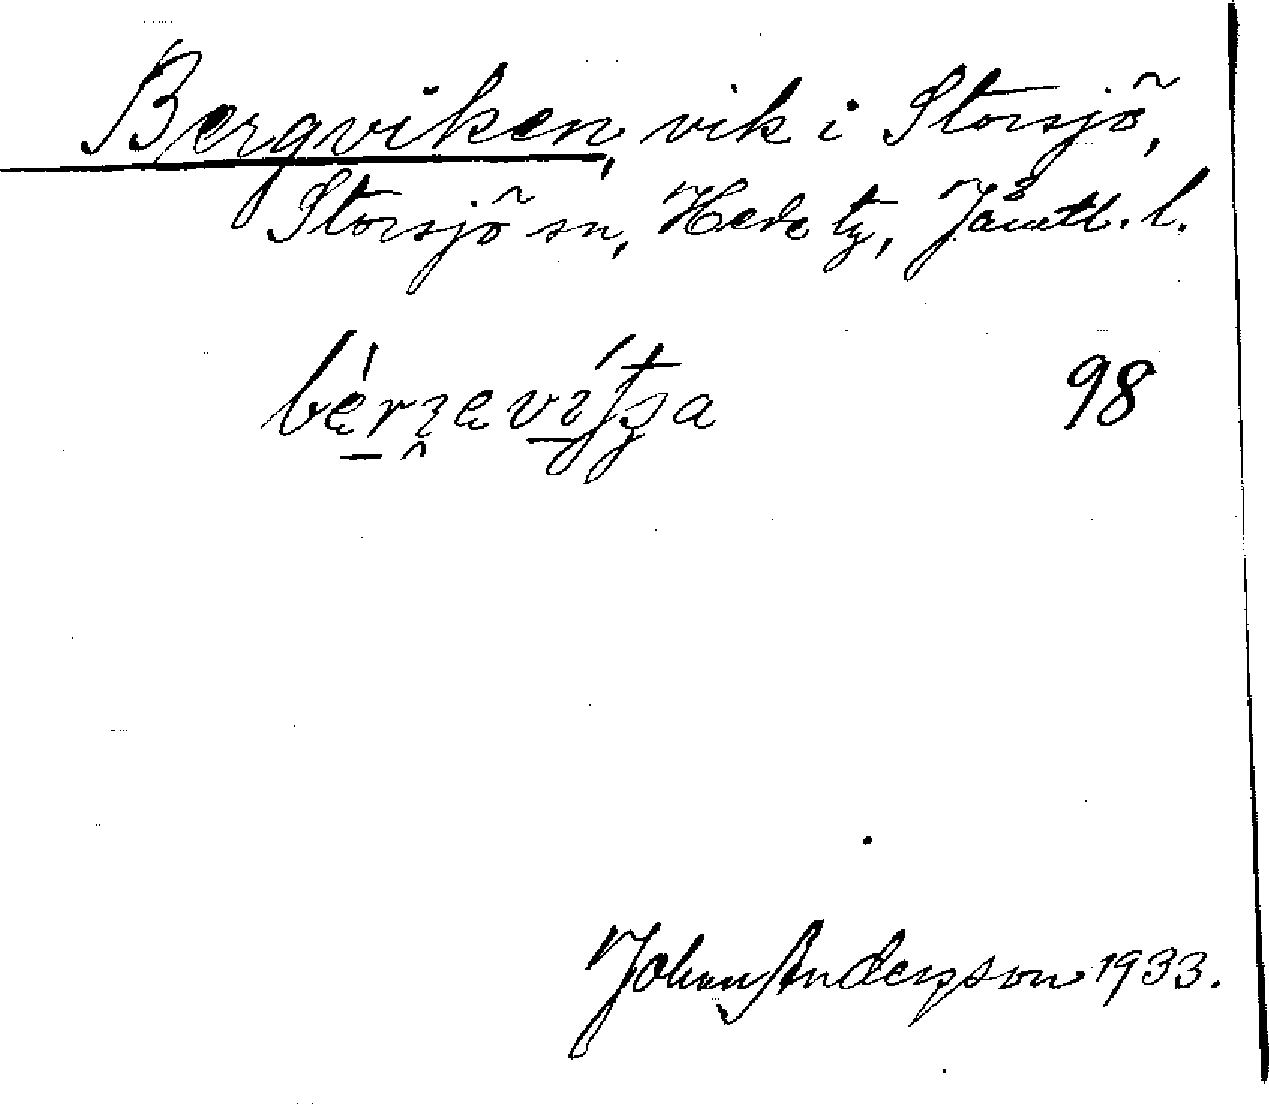 Bergviken, vik i Storsjö,
Storsjö sn, Hede tg, Jämtl. l.
98
Johan Anderson 1933.